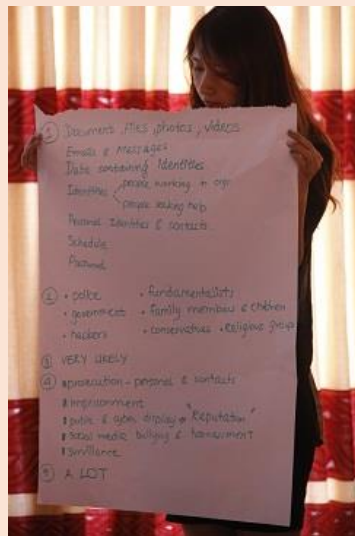 ① Documents, Files, photos, videos
Emails & Messages
Data containing Identities
Identities people working in org
people seeking help
Personal Identities & contacts
Schedule
② • police • fundamentalists
• government • family members & children
• hackers • conservatives • Religious groups
③ VERY LIKELY
④ prosecution - personal & contacts
imprisonment
public & cyber display "Reputation"
social media bullying & harassment
⑤ A LOT